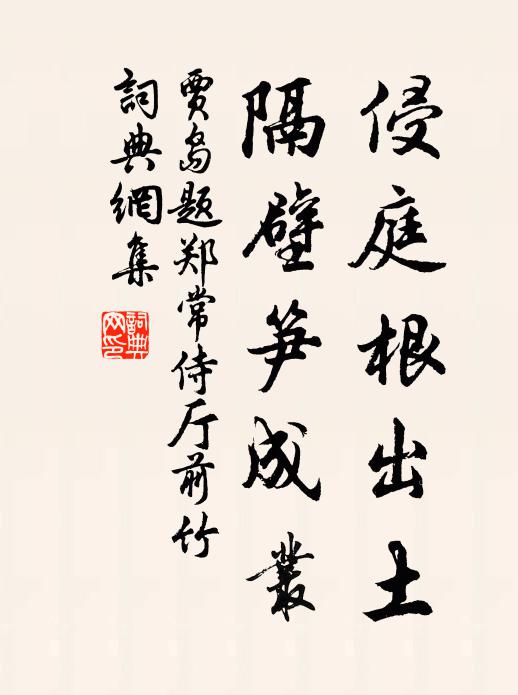 侵庭根出土
隔壁笋成叢
賈島题郑常侍厅前竹
詞典網集
詞典网印